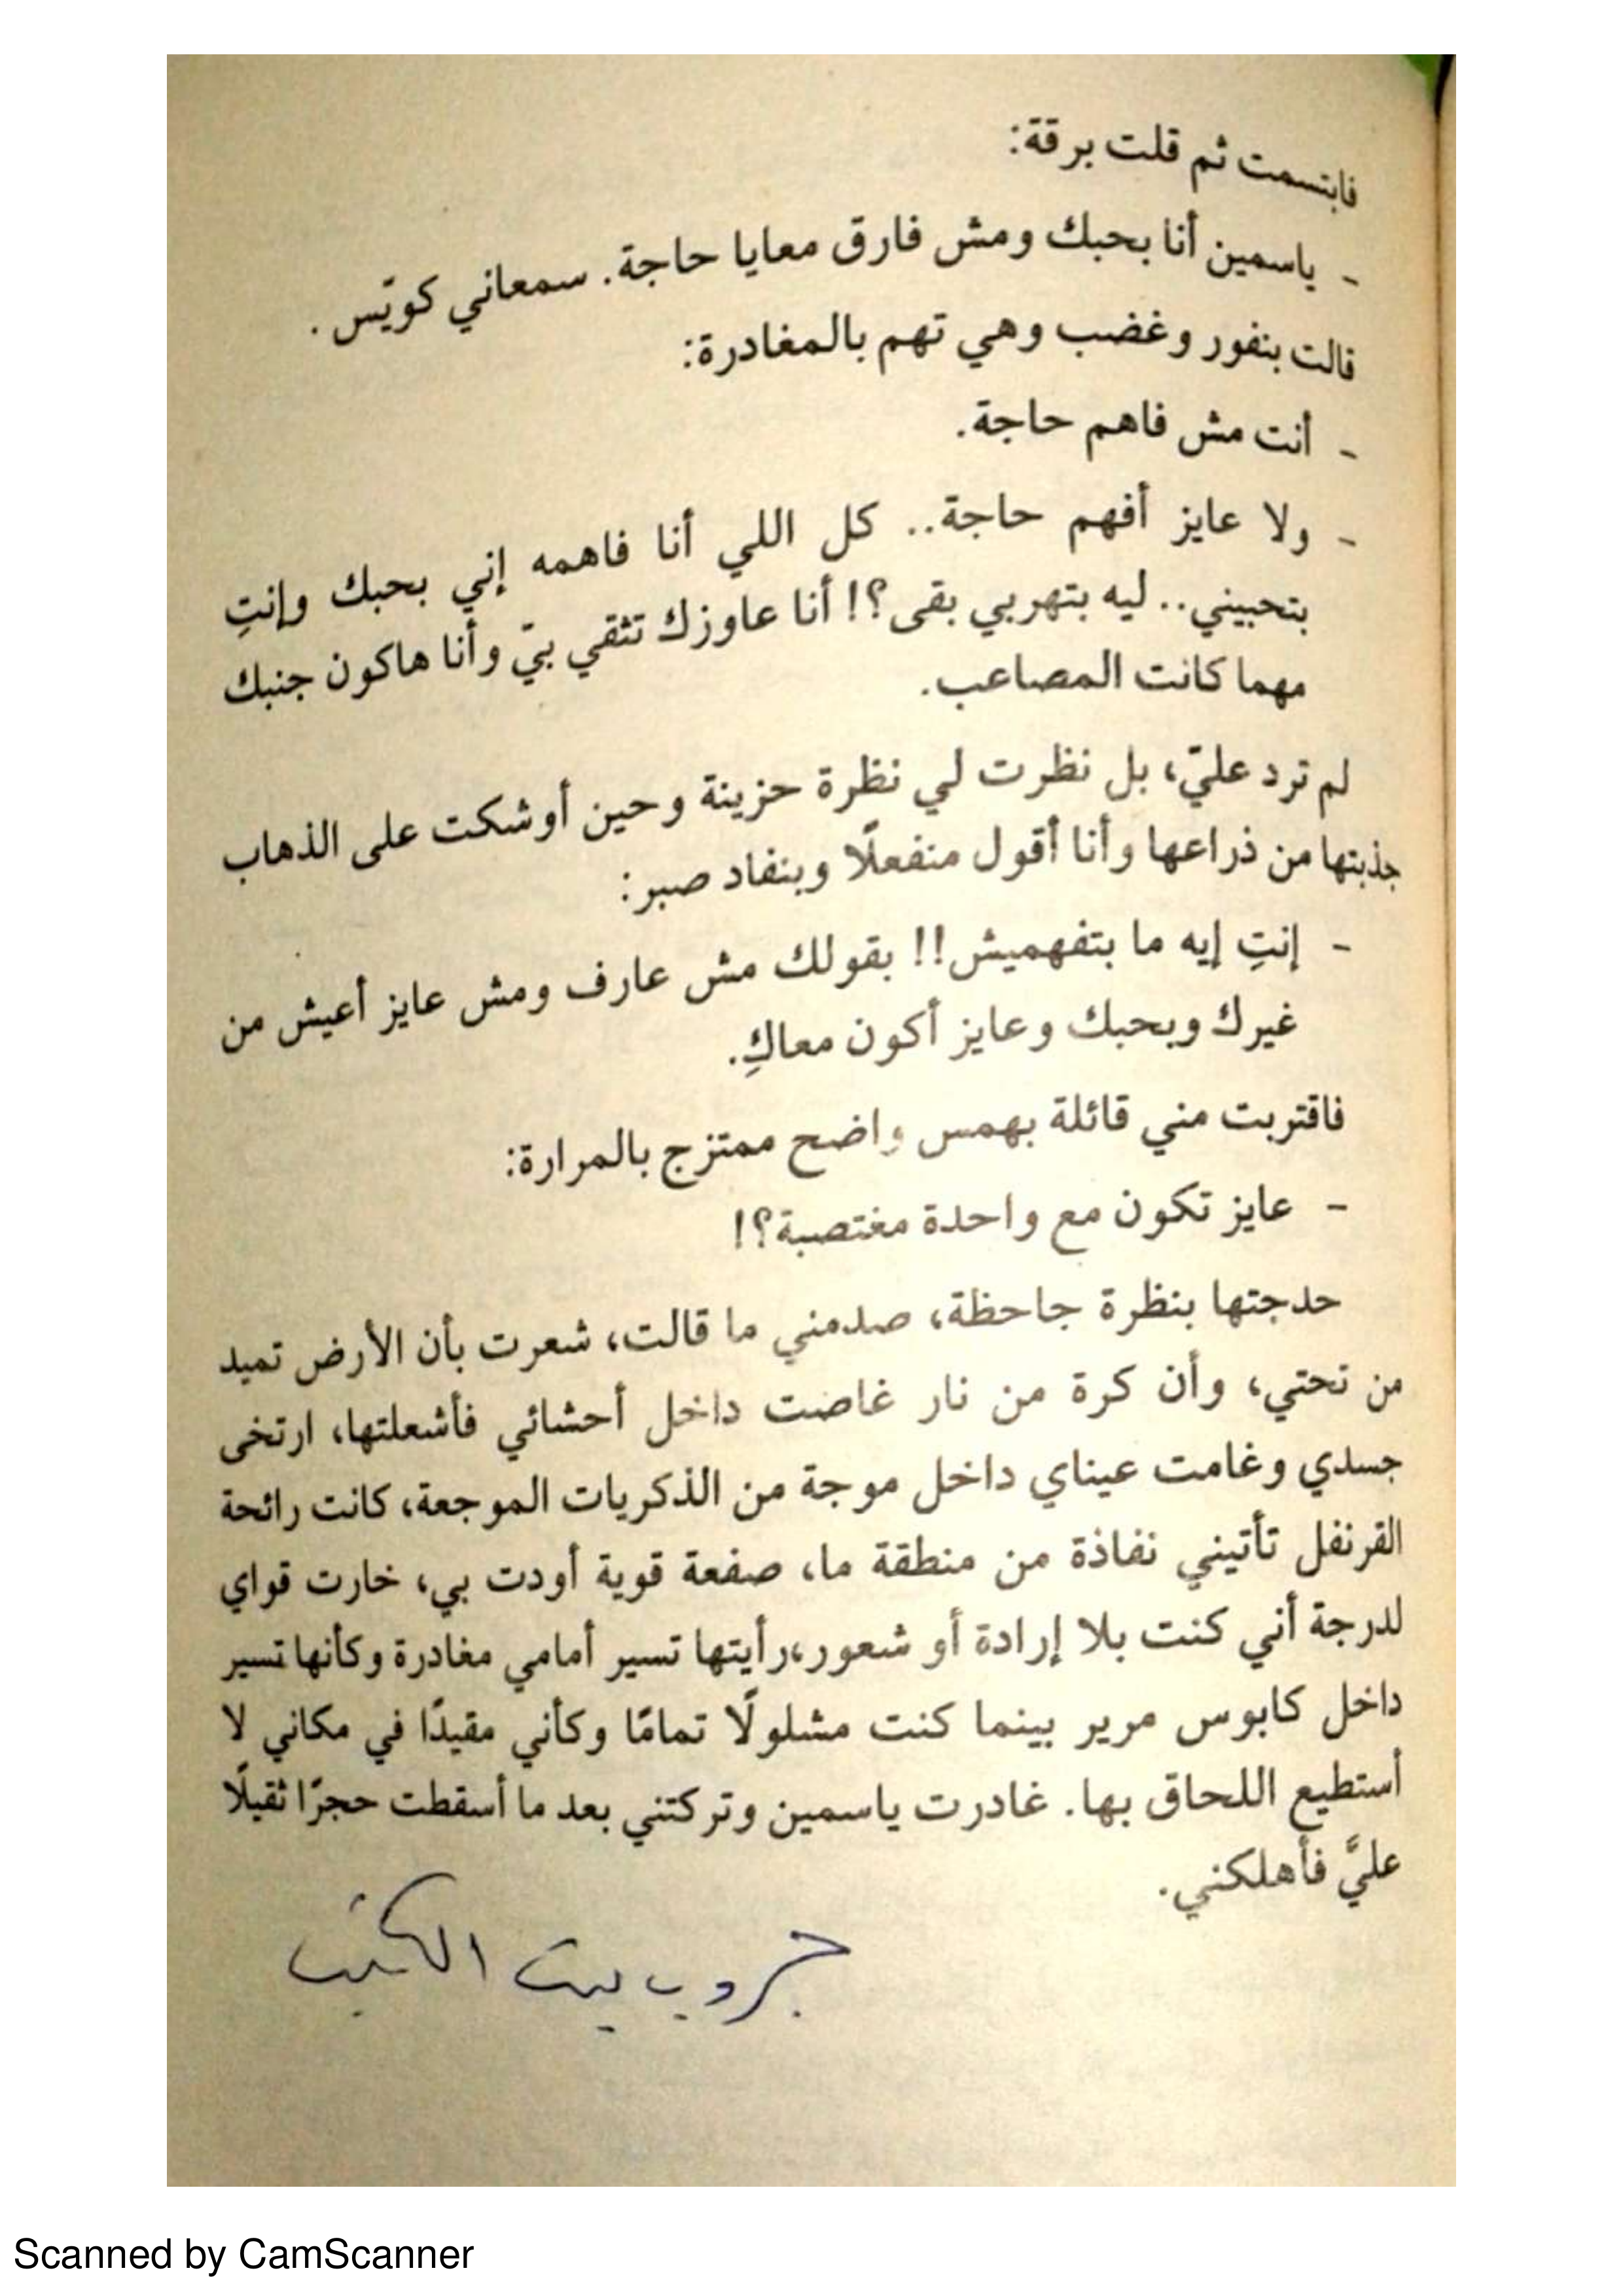 فابتسمت ثم قلت برقة:
- ياسمين أنا بحبك ومش فارق معايا حاجة. سمعاني كويّس.
قالت بنفور وغضب وهي تهم بالمغادرة:
- أنت مش فاهم حاجة.
- ولا عايز أفهم حاجة.. كل اللي أنا فاهمه إني بحبك وإنتِ
بتحبيني.. ليه بتهربي بقى؟! أنا عاوزك تثقي بيّ وأنا هاكون جنبك
مهما كانت المصاعب.
لم ترد عليّ، بل نظرت لي نظرة حزينة وحين أوشكت على الذهاب
جذبتها من ذراعها وأنا أقول منفعلًا وبنفاد صبر:
- إنتِ إيه ما بتفهميش!! بقولك مش عارف ومش عايز أعيش من
غيرك وبحبك وعايز أكون معاكِ.
فاقتربت مني قائلة بهمس واضح ممتزج بالمرارة:
- عايز تكون مع واحدة مغتصبة؟!
حدجتها بنظرة جاحظة، صدمني ما قالت، شعرت بأن الأرض تميد
من تحتي، وأن كرة من نار غاصت داخل أحشائي فأشعلتها، ارتخى
جسدي وغامت عيناي داخل موجة من الذكريات الموجعة، كانت رائحة
القرنفل تأتيني نفاذة من منطقة ما، صفعة قوية أودت بي، خارت قواي
لدرجة أني كنت بلا إرادة أو شعور،رأيتها تسير أمامي مغادرة وكأنها تسير
داخل كابوس مرير بينما كنت مشلولًا تمامًا وكأني مقيدًا في مكاني لا
أستطيع اللحاق بها. غادرت ياسمين وتركتني بعد ما أسقطت حجرًا ثقيلًا
عليَّ فأهلكني.
جروب بيت الكتب
Scanned by CamScanner